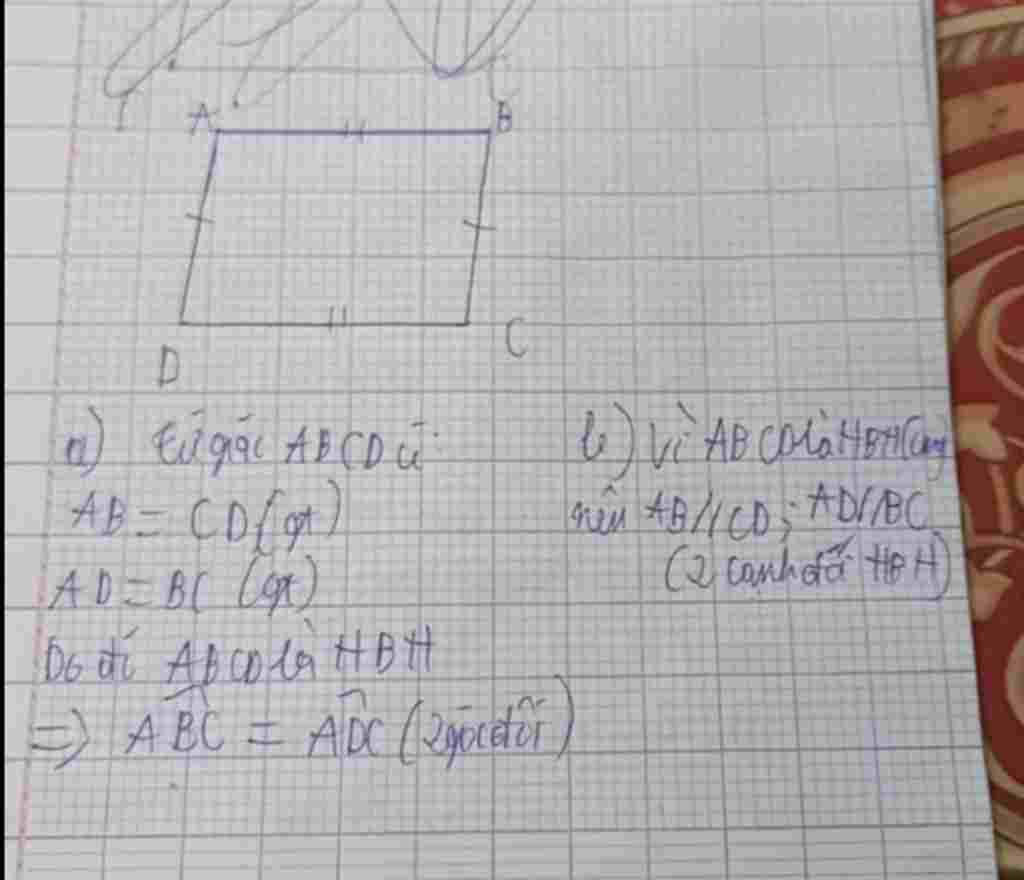 A B
D C
a) tứ giác ABCD có:
AB = CD (gt)
AD = BC (gt)
Do đó ABCD là HBH
=> ABC = ADC (2 góc đối)
b) Vì ABCD là HBH (cmt)
nên AB // CD; AD // BC
(2 cạnh đối HBH)